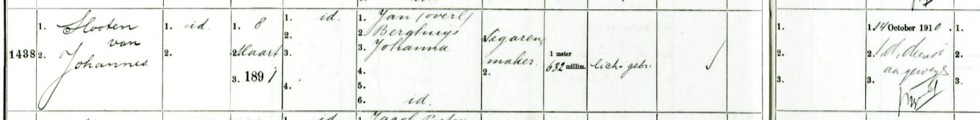 1438
1. Slooten
van
2. Johannes
1. id.
2.
1. 8
2. Maart
3. 1891
1. id.
2.
3.
4.
1. Jan (overl)
2. Berghuijs
3. Johanna
4.
5.
6. id.
Sigaren,
maker.
2.
1 meter
632 millim.
lich. gebr.
1. 14 October 1910.
2. t. d. dienst
aangewez
3.
1.
2.
3.
id